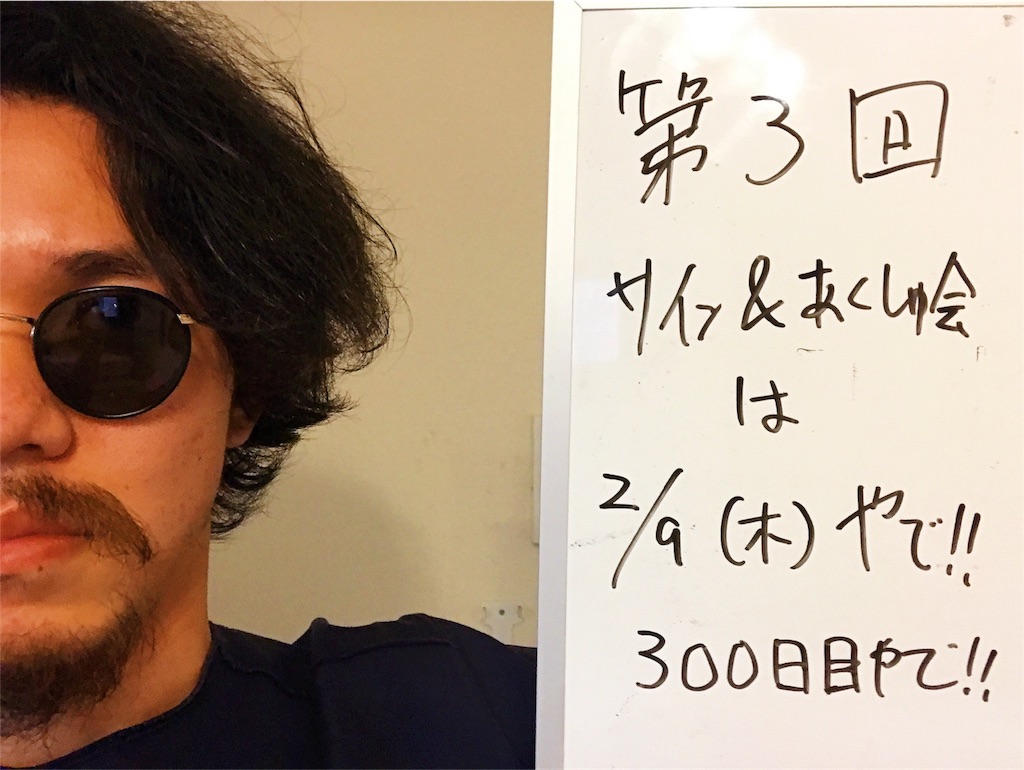 第3回
サイン&あくしゅ絵
は
2/9(木)やで!!
300日目やで!!